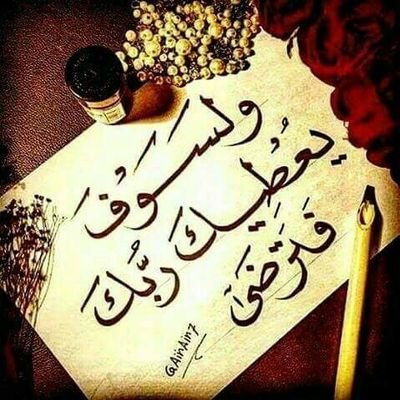 ولسَوْفَ
يُعْطِيكَ رَبُّكَ
فَتَرْضَىٰ
@AinAin7